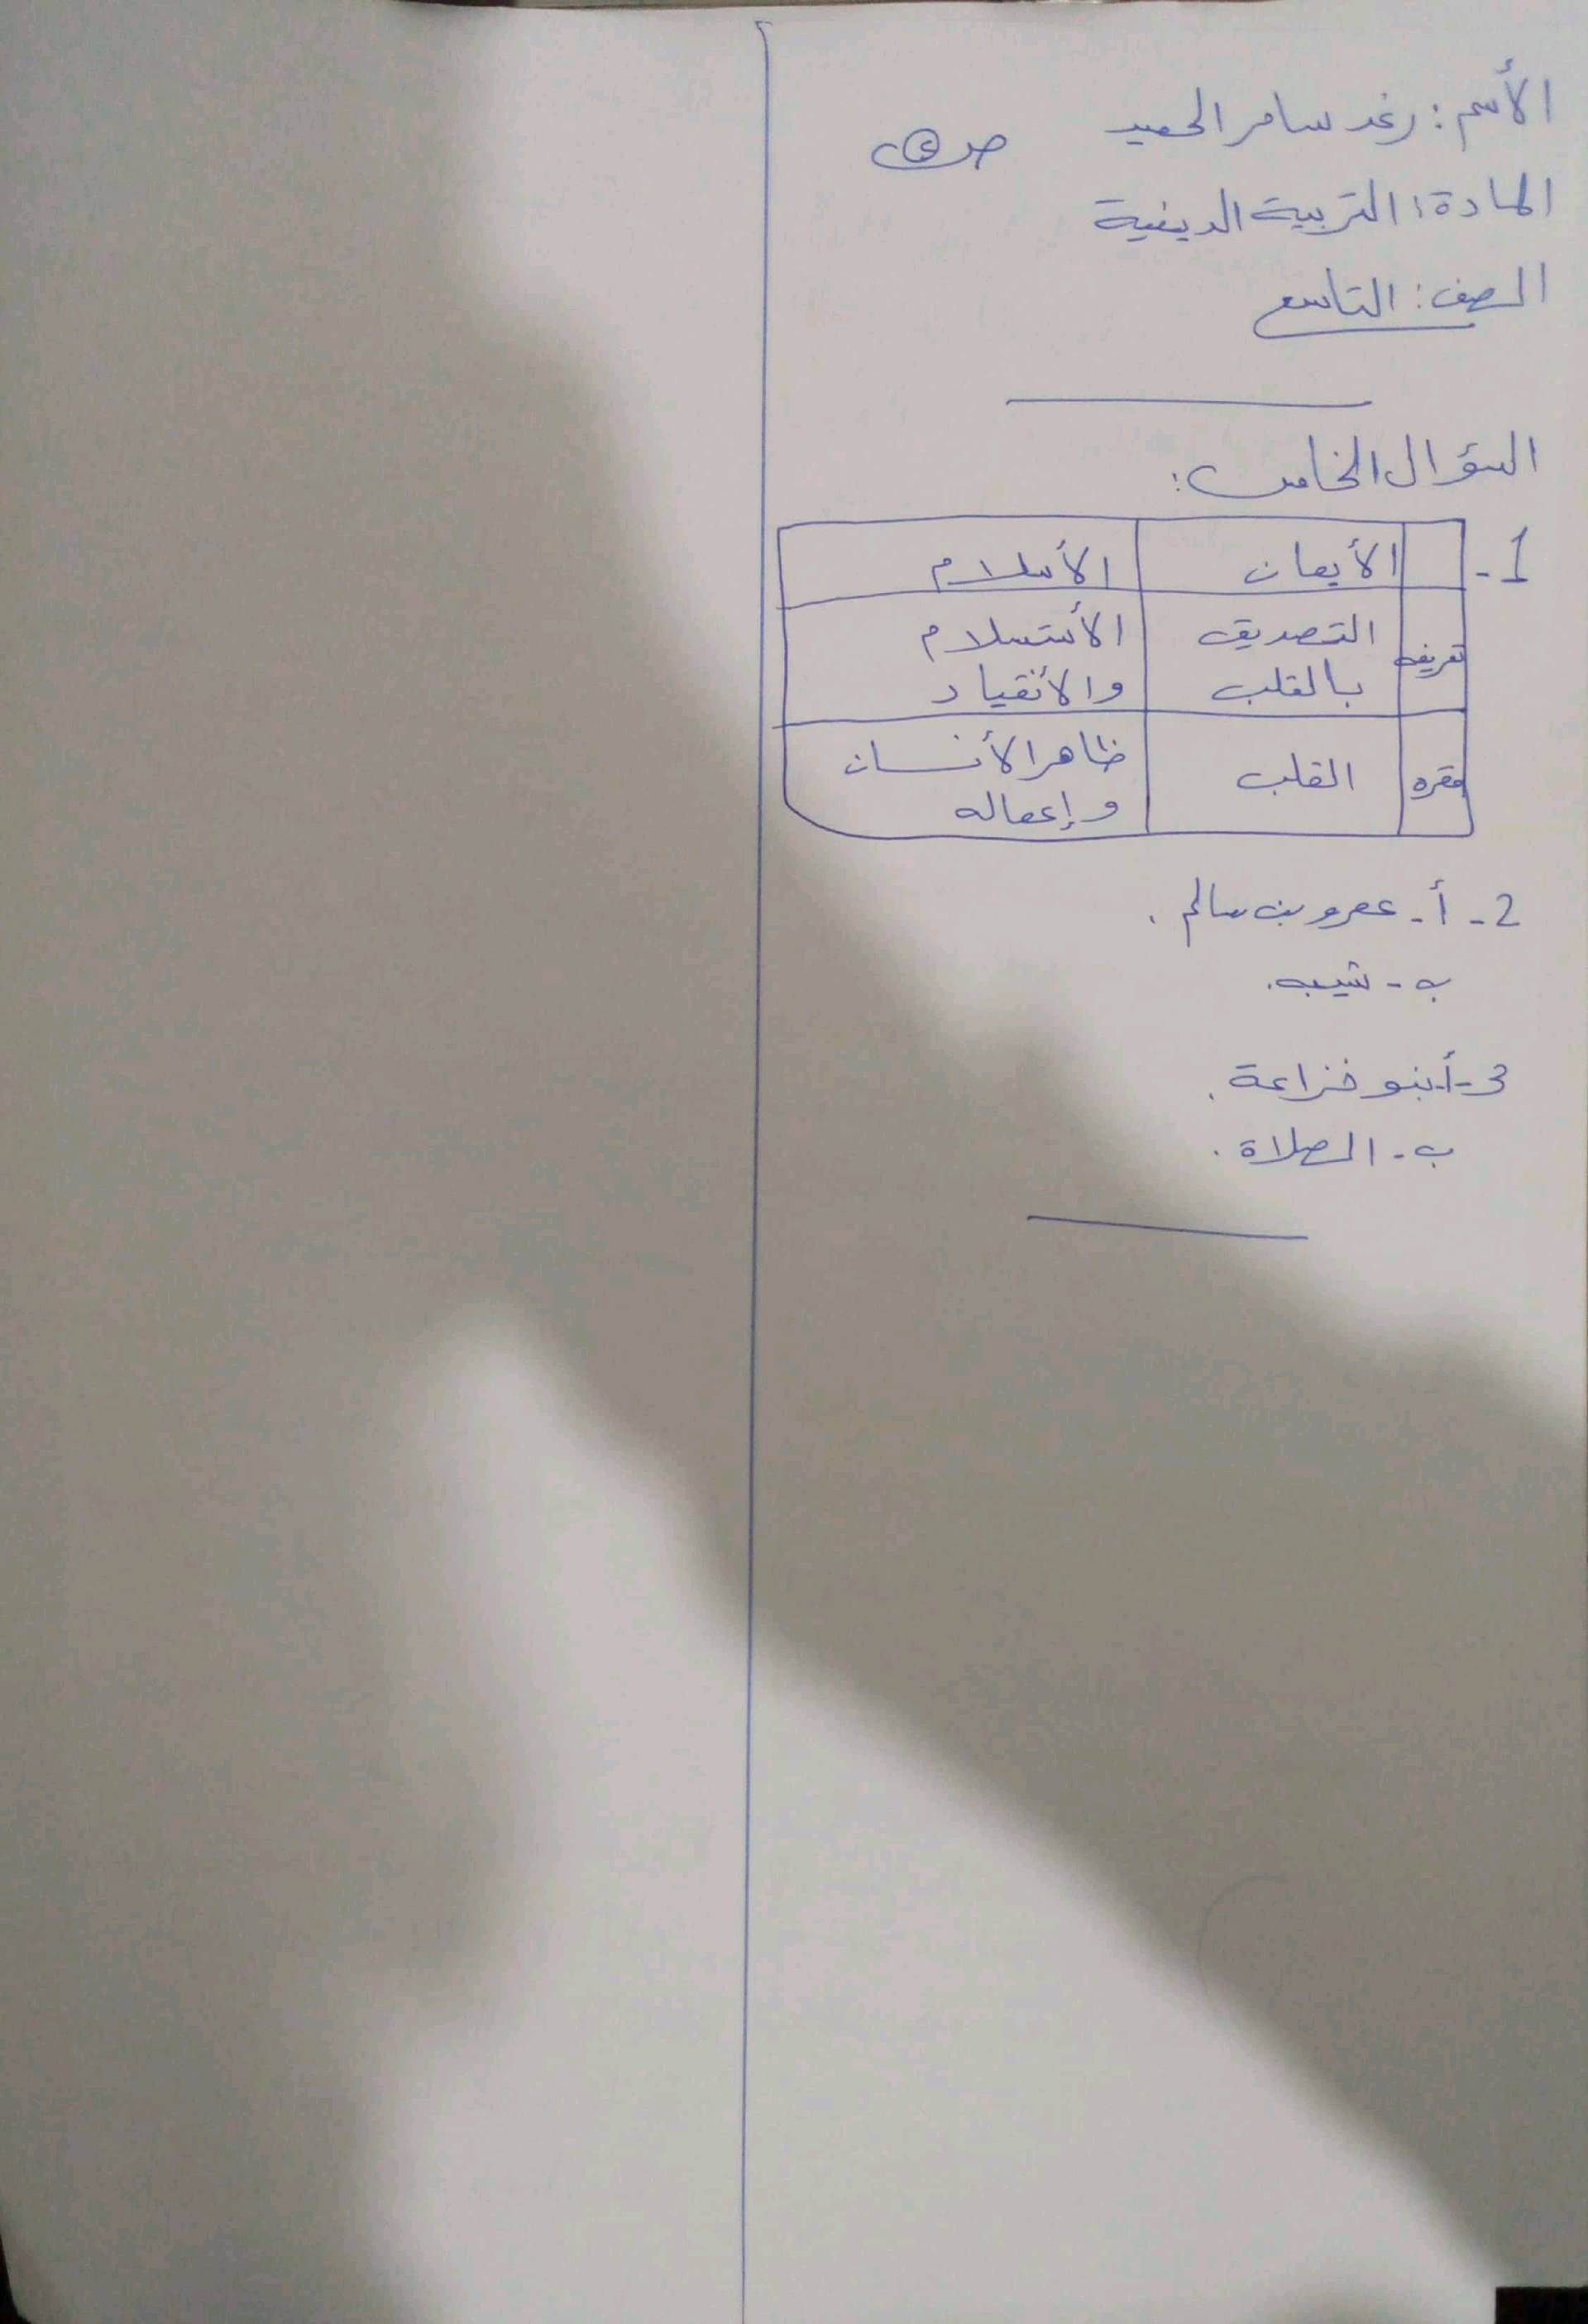 الأسم: رغد سامر الحميد
المادة: التربية الدينية
الصف: التاسع
السؤال الخامس:
1- الأيمان الأسلام
تعريفه التصديق بالقلب الأستسلام والأنقياد
مقره القلب ظاهر الأنسان وإعماله
2- أ- عمرو بن سالم.
ب- شيبه.
3- أ- بنو خزاعة.
ب- الصلاة.